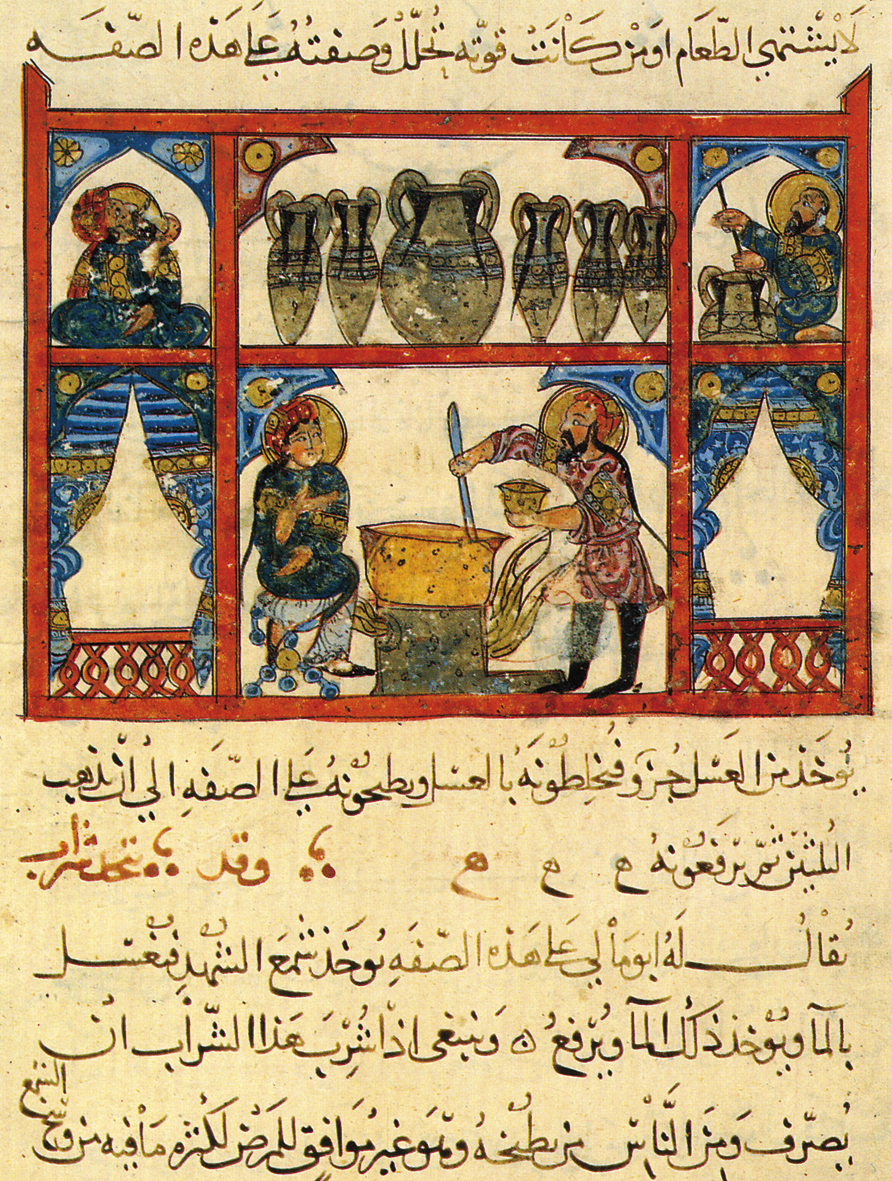 لا يشتهي الطّعام او من كانت قوّته تحلّل وصنعته على هذه الصّفه
يؤخذ من العسل جزو فيخلطونه بالعسل ويطبخونه على الصّفه الي ان يذهب
الثلثين ثمّ يرفعونه م م م وقد يتخذ شراب
يقال له ابومالي على هذه الصّفه يؤخذ شمع الشهد فيغسل
بالما ويؤخذ ذلك الما ويرفع ه وينبغى اذا شرب هذا الشّراب ان
الشمع
يصرّف ومن النّاس من يطبخه وهو غير موافق للمرضى لكثره ما فيه من وسخ